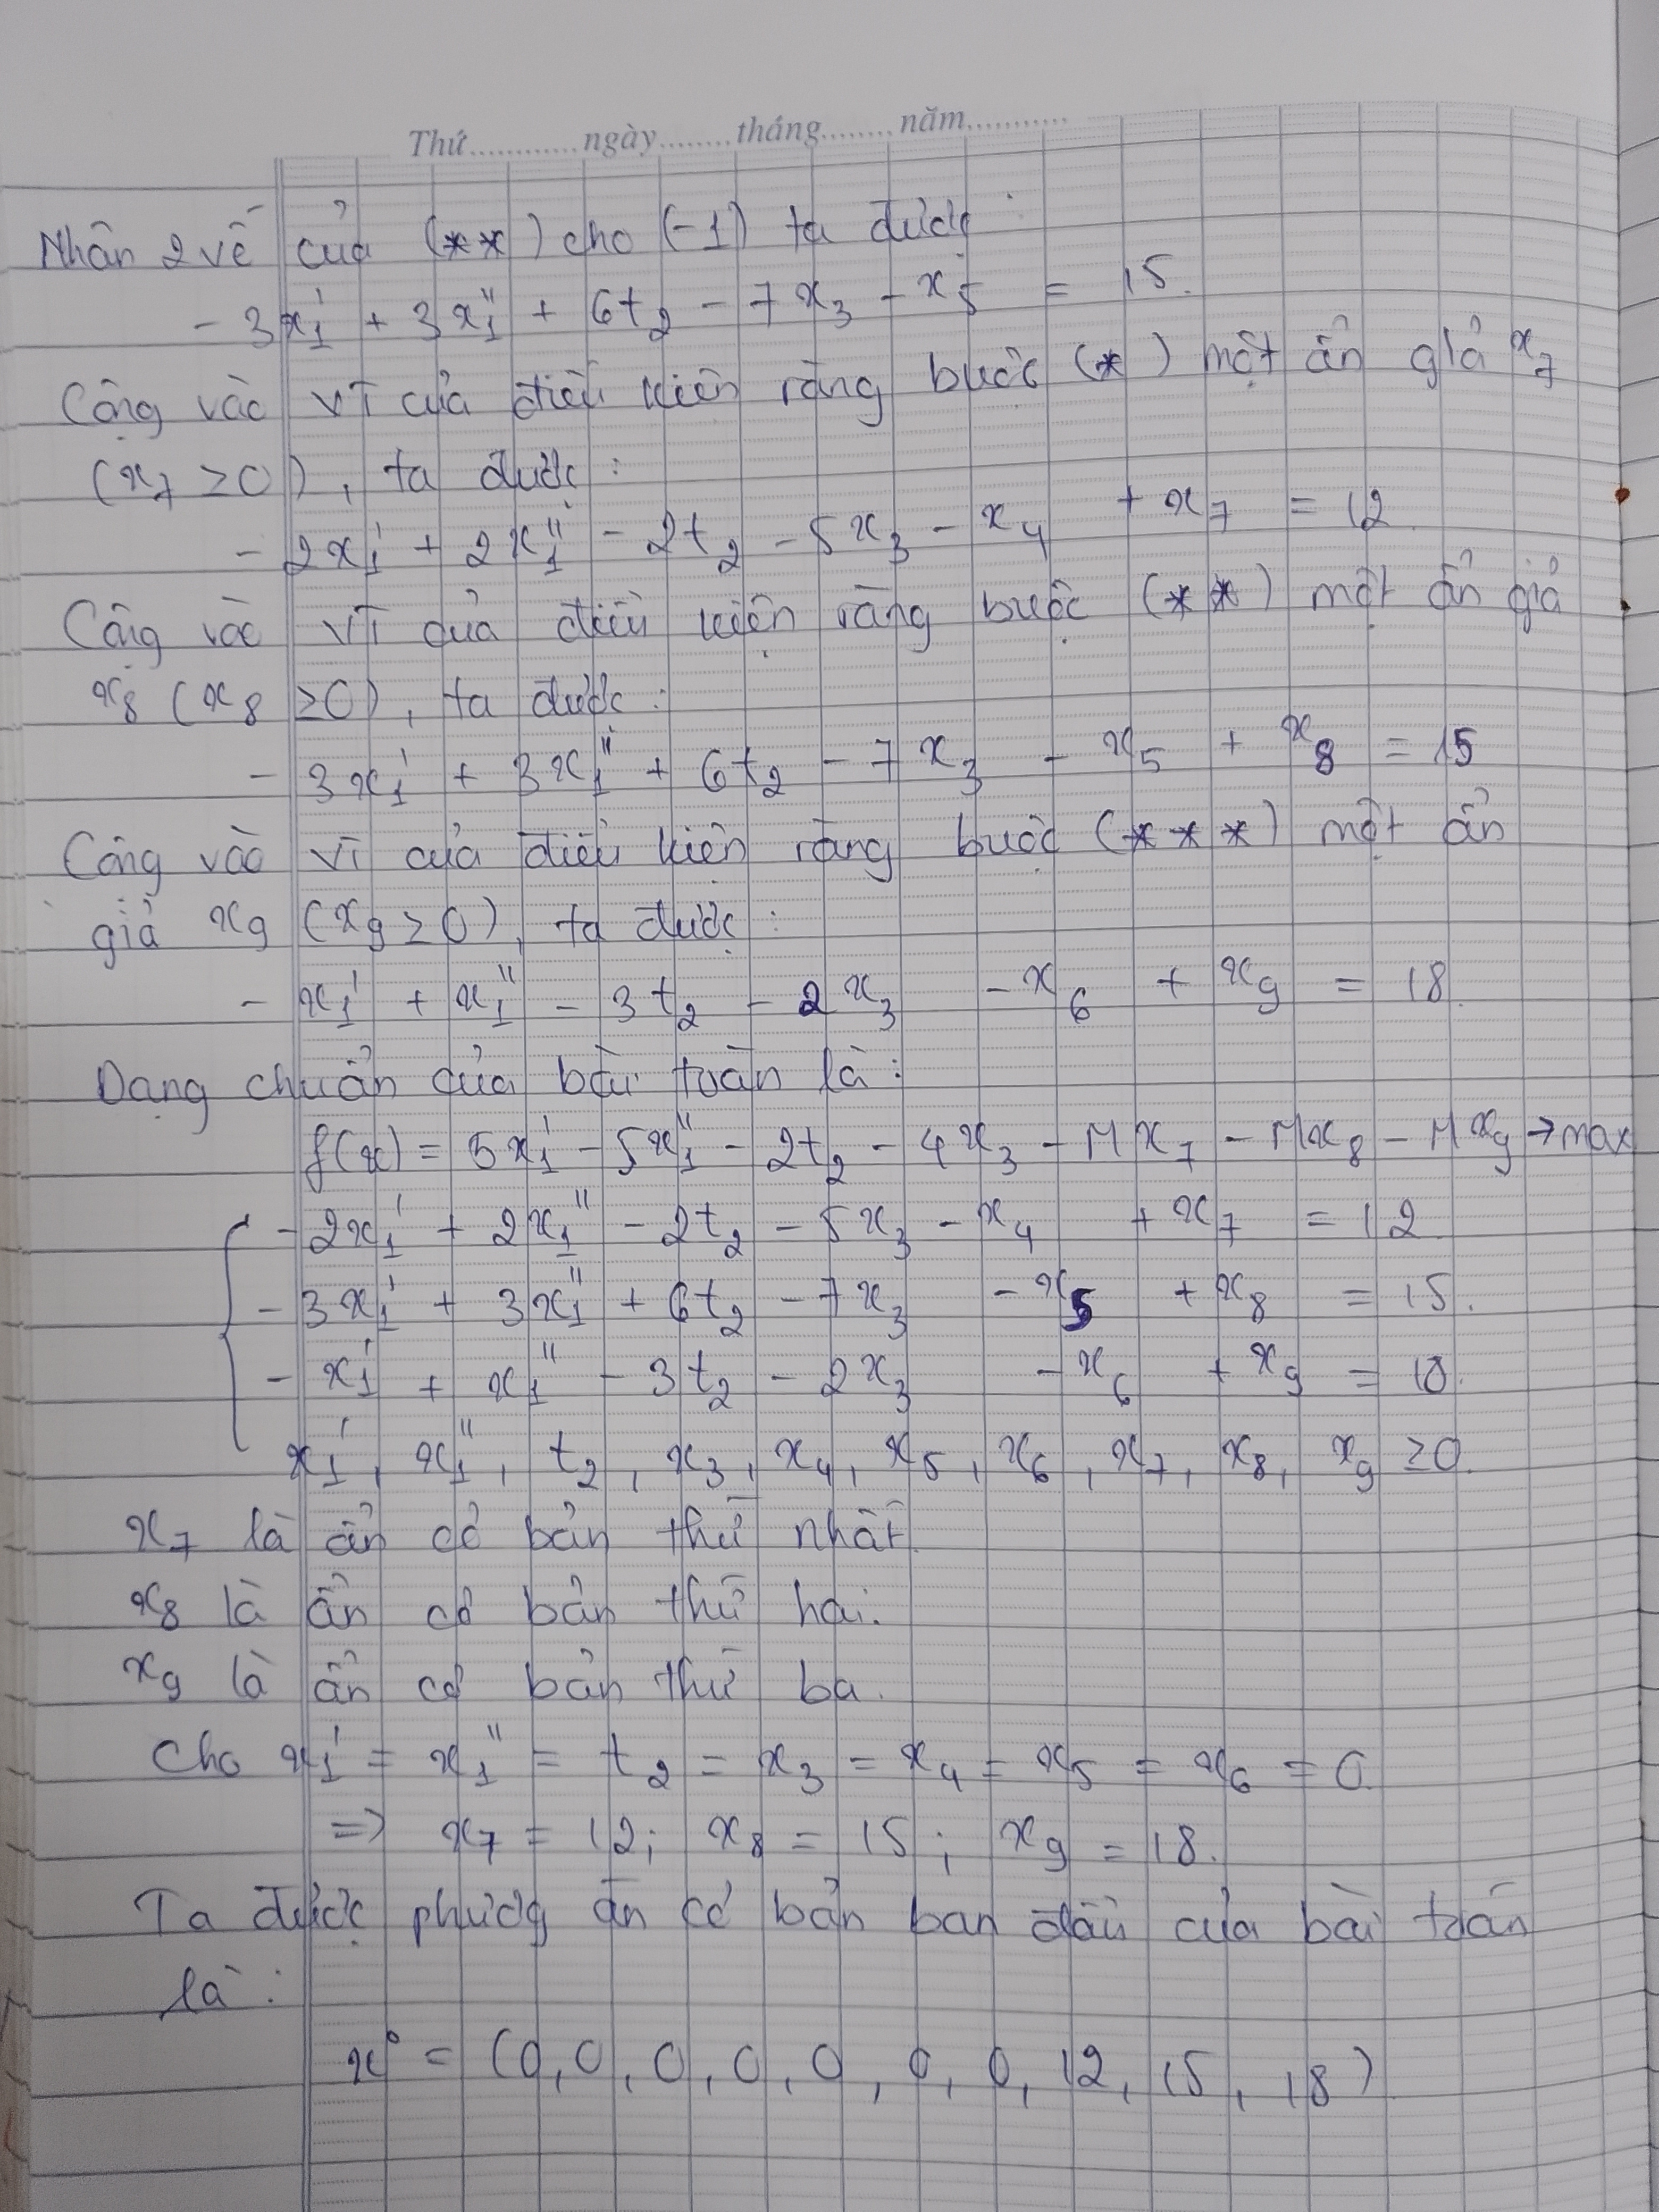 Thứ............ngày........tháng........năm...........
Nhân 2 vế của (**) cho (-1) ta được:
- 3x₁' + 3x₁'' + 6t₂ - 7x₃ - x₅ = 15.
Cộng vào VT của điều kiện ràng buộc (*) một ẩn giả x₇
(x₇ ≥0), ta được:
- 2x₁' + 2x₁'' - 2t₂ - 5x₃ - x₄ + x₇ = 12.
Cộng vào VT của điều kiện ràng buộc (**) một ẩn giả
x₈ (x₈ ≥0), ta được:
- 3x₁' + 3x₁'' + 6t₂ - 7x₃ - x₅ + x₈ = 15
Cộng vào VT của điều kiện ràng buộc (***) một ẩn
giả x₉ (x₉ ≥ 0), ta được:
- x₁' + x₁'' - 3t₂ - 2x₃ - x₆ + x₉ = 18.
Dạng chuẩn của bài toán là:
f(x) = 5x₁' - 5x₁'' - 2t₂ - 4x₃ - Mx₇ - Mx₈ - Mx₉ → max
- 2x₁' + 2x₁'' - 2t₂ - 5x₃ - x₄ + x₇ = 12
- 3x₁' + 3x₁'' + 6t₂ - 7x₃ - x₅ + x₈ = 15.
- x₁' + x₁'' - 3t₂ - 2x₃ - x₆ + x₉ = 18.
x₁', x₁'', t₂, x₃, x₄, x₅, x₆, x₇, x₈, x₉ ≥0.
x₇ là ẩn cơ bản thứ nhất.
x₈ là ẩn cơ bản thứ hai.
x₉ là ẩn cơ bản thứ ba.
Cho x₁' = x₁'' = t₂ = x₃ = x₄ = x₅ = x₆ = 0.
=> x₇ = 12; x₈ = 15; x₉ = 18.
Ta được phương án cơ bản ban đầu của bài toán
là:
x⁰ = (0, 0, 0, 0, 0, 0, 0, 12, 15, 18)